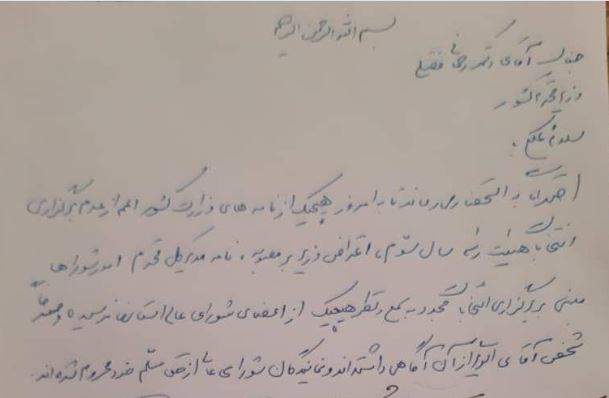 بسم الله الرحمن الرحیم
جناب آقای دکتر رحمانی فضلی
وزیر محترم کشور
سلام علیکم
احتراماً به استحضار می رساند تا به امروز هیچیک از نامه های وزارت کشور اعم از عدم برگزاری
انتخابات هیئت رئیسه سال سوم، اعتراض وزیر بر مصوبه، نامه مدیرکل محترم امور شوراها
مبنی بر برگزاری انتخابات مجدد به سمع و نظر هیچیک از اعضای شورای عالی استانها نرسیده و صرفاً
شخص آقای از آن آگاهی داشته اند و نمایندگان شورای عالی از حق مسلم خود محروم شده اند